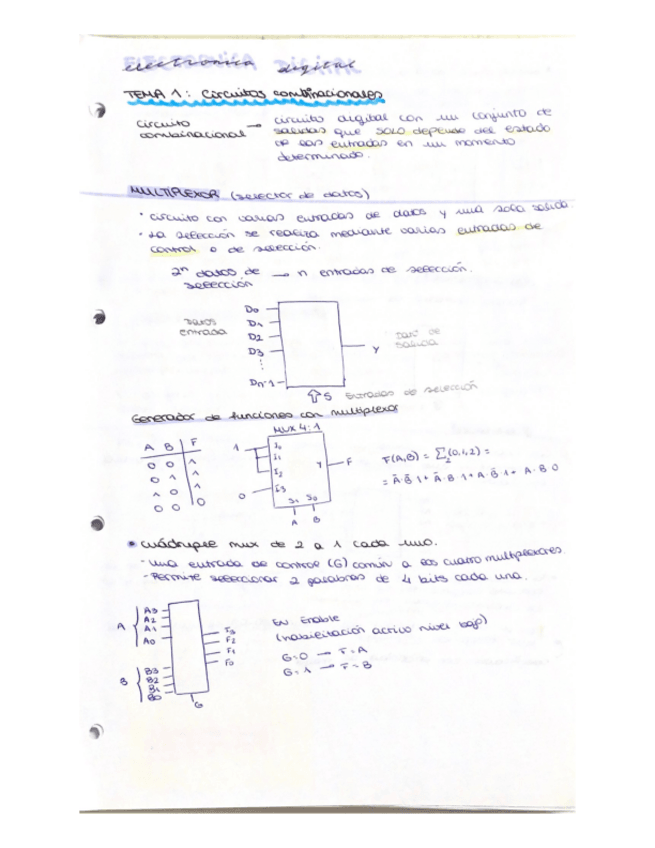 electronica digital
TEMA 1: Circuitos combinacionales
circuito combinacional → circuito digital con un conjunto de
salidas que SOLO depende del estado
de las entradas en un momento
determinado.
MULTIPLEXOR (selector de datos)
· circuito con varias entradas de datos y una sola salida.
· La selección se realiza mediante varias entradas de
control o de selección.
2ⁿ datos de → n entradas de selección.
selección
datos entrada
D0
D1
D2
D3
⋮
Dn-1
Y
dato de salida
⇧ S Entradas de selección
Generador de funciones con multiplexor
MUX 4:1
A B F
0 0 1
0 1 1
1 0 1
0 0 0
1
0
I0
I1
I2
I3
Y
F
S1 S0
A B
F(A,B) = Σ2(0,1,2) =
= Ā·B̄·1 + Ā·B·1 + A·B̄·1 + A·B·0
* cuádruple mux de 2 a 1 cada uno.
- Una entrada de control (G) común a los cuatro multiplexores.
- Permite seleccionar 2 palabras de 4 bits cada una.
A
A3
A2
A1
A0
B
B3
B2
B1
B0
F3
F2
F1
F0
G
EN Enable
(habilitación activo nivel bajo)
G=0 → F=A
G=1 → F=B